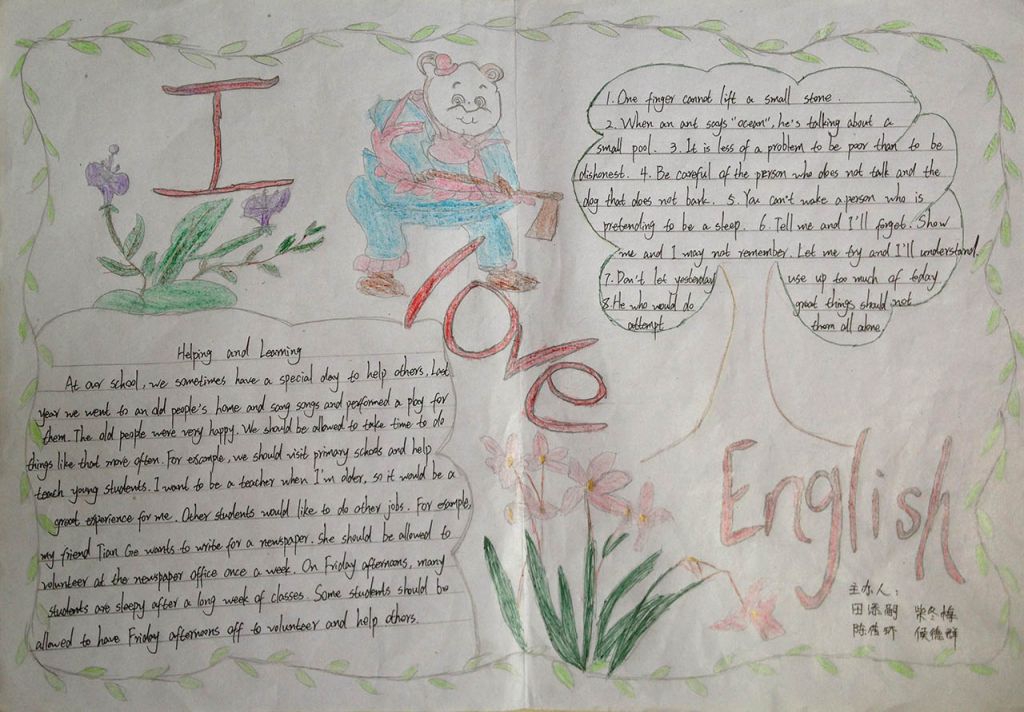 I
love
English
1. One finger cannot lift a small stone.
2. When an ant says "ocean", he's talking about a
small pool. 3. It is less of a problem to be poor than to be
dishonest. 4. Be careful of the person who does not talk and the
dog that does not bark. 5. You can't wake a person who is
pretending to be a sleep. 6. Tell me and I'll forgot. Show
me and I may not remember. Let me try and I'll understand.
7. Don't let yesterday use up too much of today
8. He who would do great things should not
attempt them all alone
Helping and Learning
At our school, we sometimes have a special day to help others. Last
year we went to an old people's home and sang songs and performed a play for
them. The old people were very happy. We should be allowed to take time to do
things like that more often. For example, we should visit primary schools and help
teach young students. I want to be a teacher when I'm older, so it would be a
great experience for me. Other students would like to do other jobs. For example,
my friend Tian Ge wants to write for a newspaper. She should be allowed to
volunteer at the newspaper office once a week. On Friday afternoons, many
students are sleepy after a long week of classes. Some students should be
allowed to have Friday afternoons off to volunteer and help others.
主办人:
田 柴冬梅
陈 侯德群